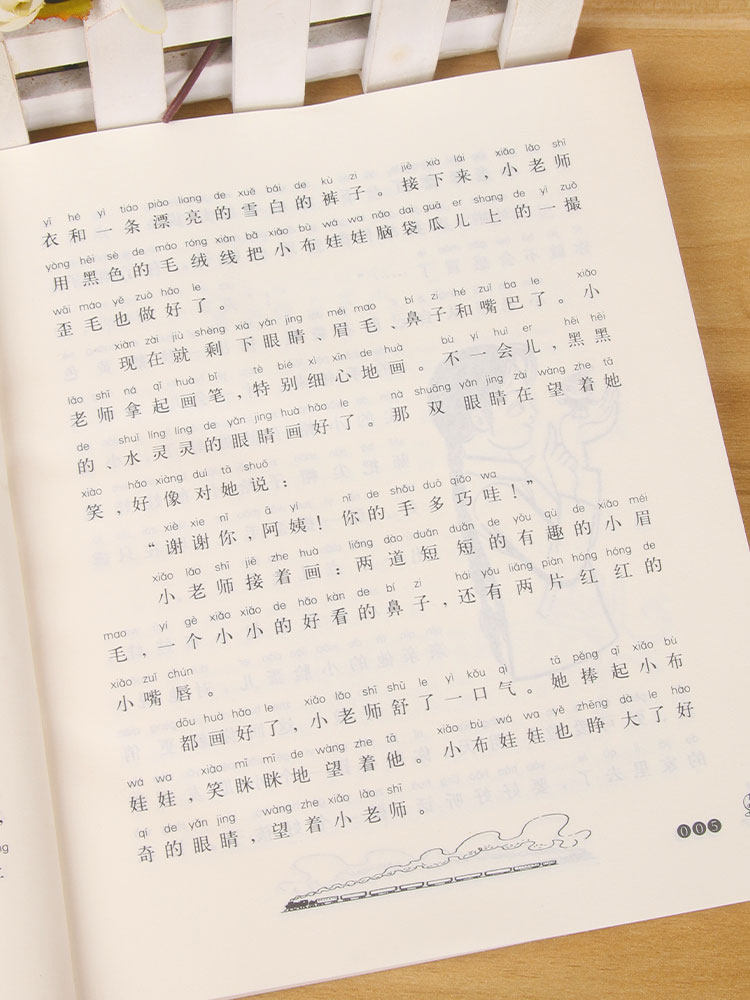 yī hé yì tiáo piào liang de xuě bái de kù zi jiē xià lái xiǎo lǎo shī
衣和一条漂亮的雪白的裤子。接下来，小老师
yòng hēi sè de máo róng xiàn bǎ xiǎo bù wá wa nǎo dai guā er shang de yì zuǒ
用黑色的毛绒线把小布娃娃脑袋瓜儿上的一撮
wāi máo yě zuò hǎo le
歪毛也做好了。
xiàn zài jiù shèng xià yǎn jing méi mao bí zi hé zuǐ ba le xiǎo
现在就剩下眼睛、眉毛、鼻子和嘴巴了。小
lǎo shī ná qǐ huà bǐ tè bié xì xīn de huà bù yí huì er hēi hēi
老师拿起画笔，特别细心地画。不一会儿，黑黑
de shuǐ líng líng de yǎn jing huà hǎo le nà shuāng yǎn jing zài wàng zhe tā
的、水灵灵的眼睛画好了。那双眼睛在望着她
xiào hǎo xiàng duì tā shuō
笑，好像对她说：
xiè xie nǐ ā yí nǐ de shǒu duō qiǎo wa
“谢谢你，阿姨！你的手多巧哇！”
xiǎo lǎo shī jiē zhe huà liǎng dào duǎn duǎn de yǒu qù de xiǎo méi
小老师接着画：两道短短的有趣的小眉
mao yí gè xiǎo xiǎo de hǎo kàn de bí zi hái yǒu liǎng piàn hóng hóng de
毛，一个小小的好看的鼻子，还有两片红红的
xiǎo zuǐ chún
小嘴唇。
dōu huà hǎo le xiǎo lǎo shī shū le yì kǒu qì tā pěng qǐ xiǎo bù
都画好了，小老师舒了一口气。她捧起小布
wá wa xiào mī mī de wàng zhe tā xiǎo bù wá wa yě zhēng dà le hào
娃娃，笑眯眯地望着他。小布娃娃也睁大了好
qí de yǎn jing wàng zhe xiǎo lǎo shī
奇的眼睛，望着小老师。
005